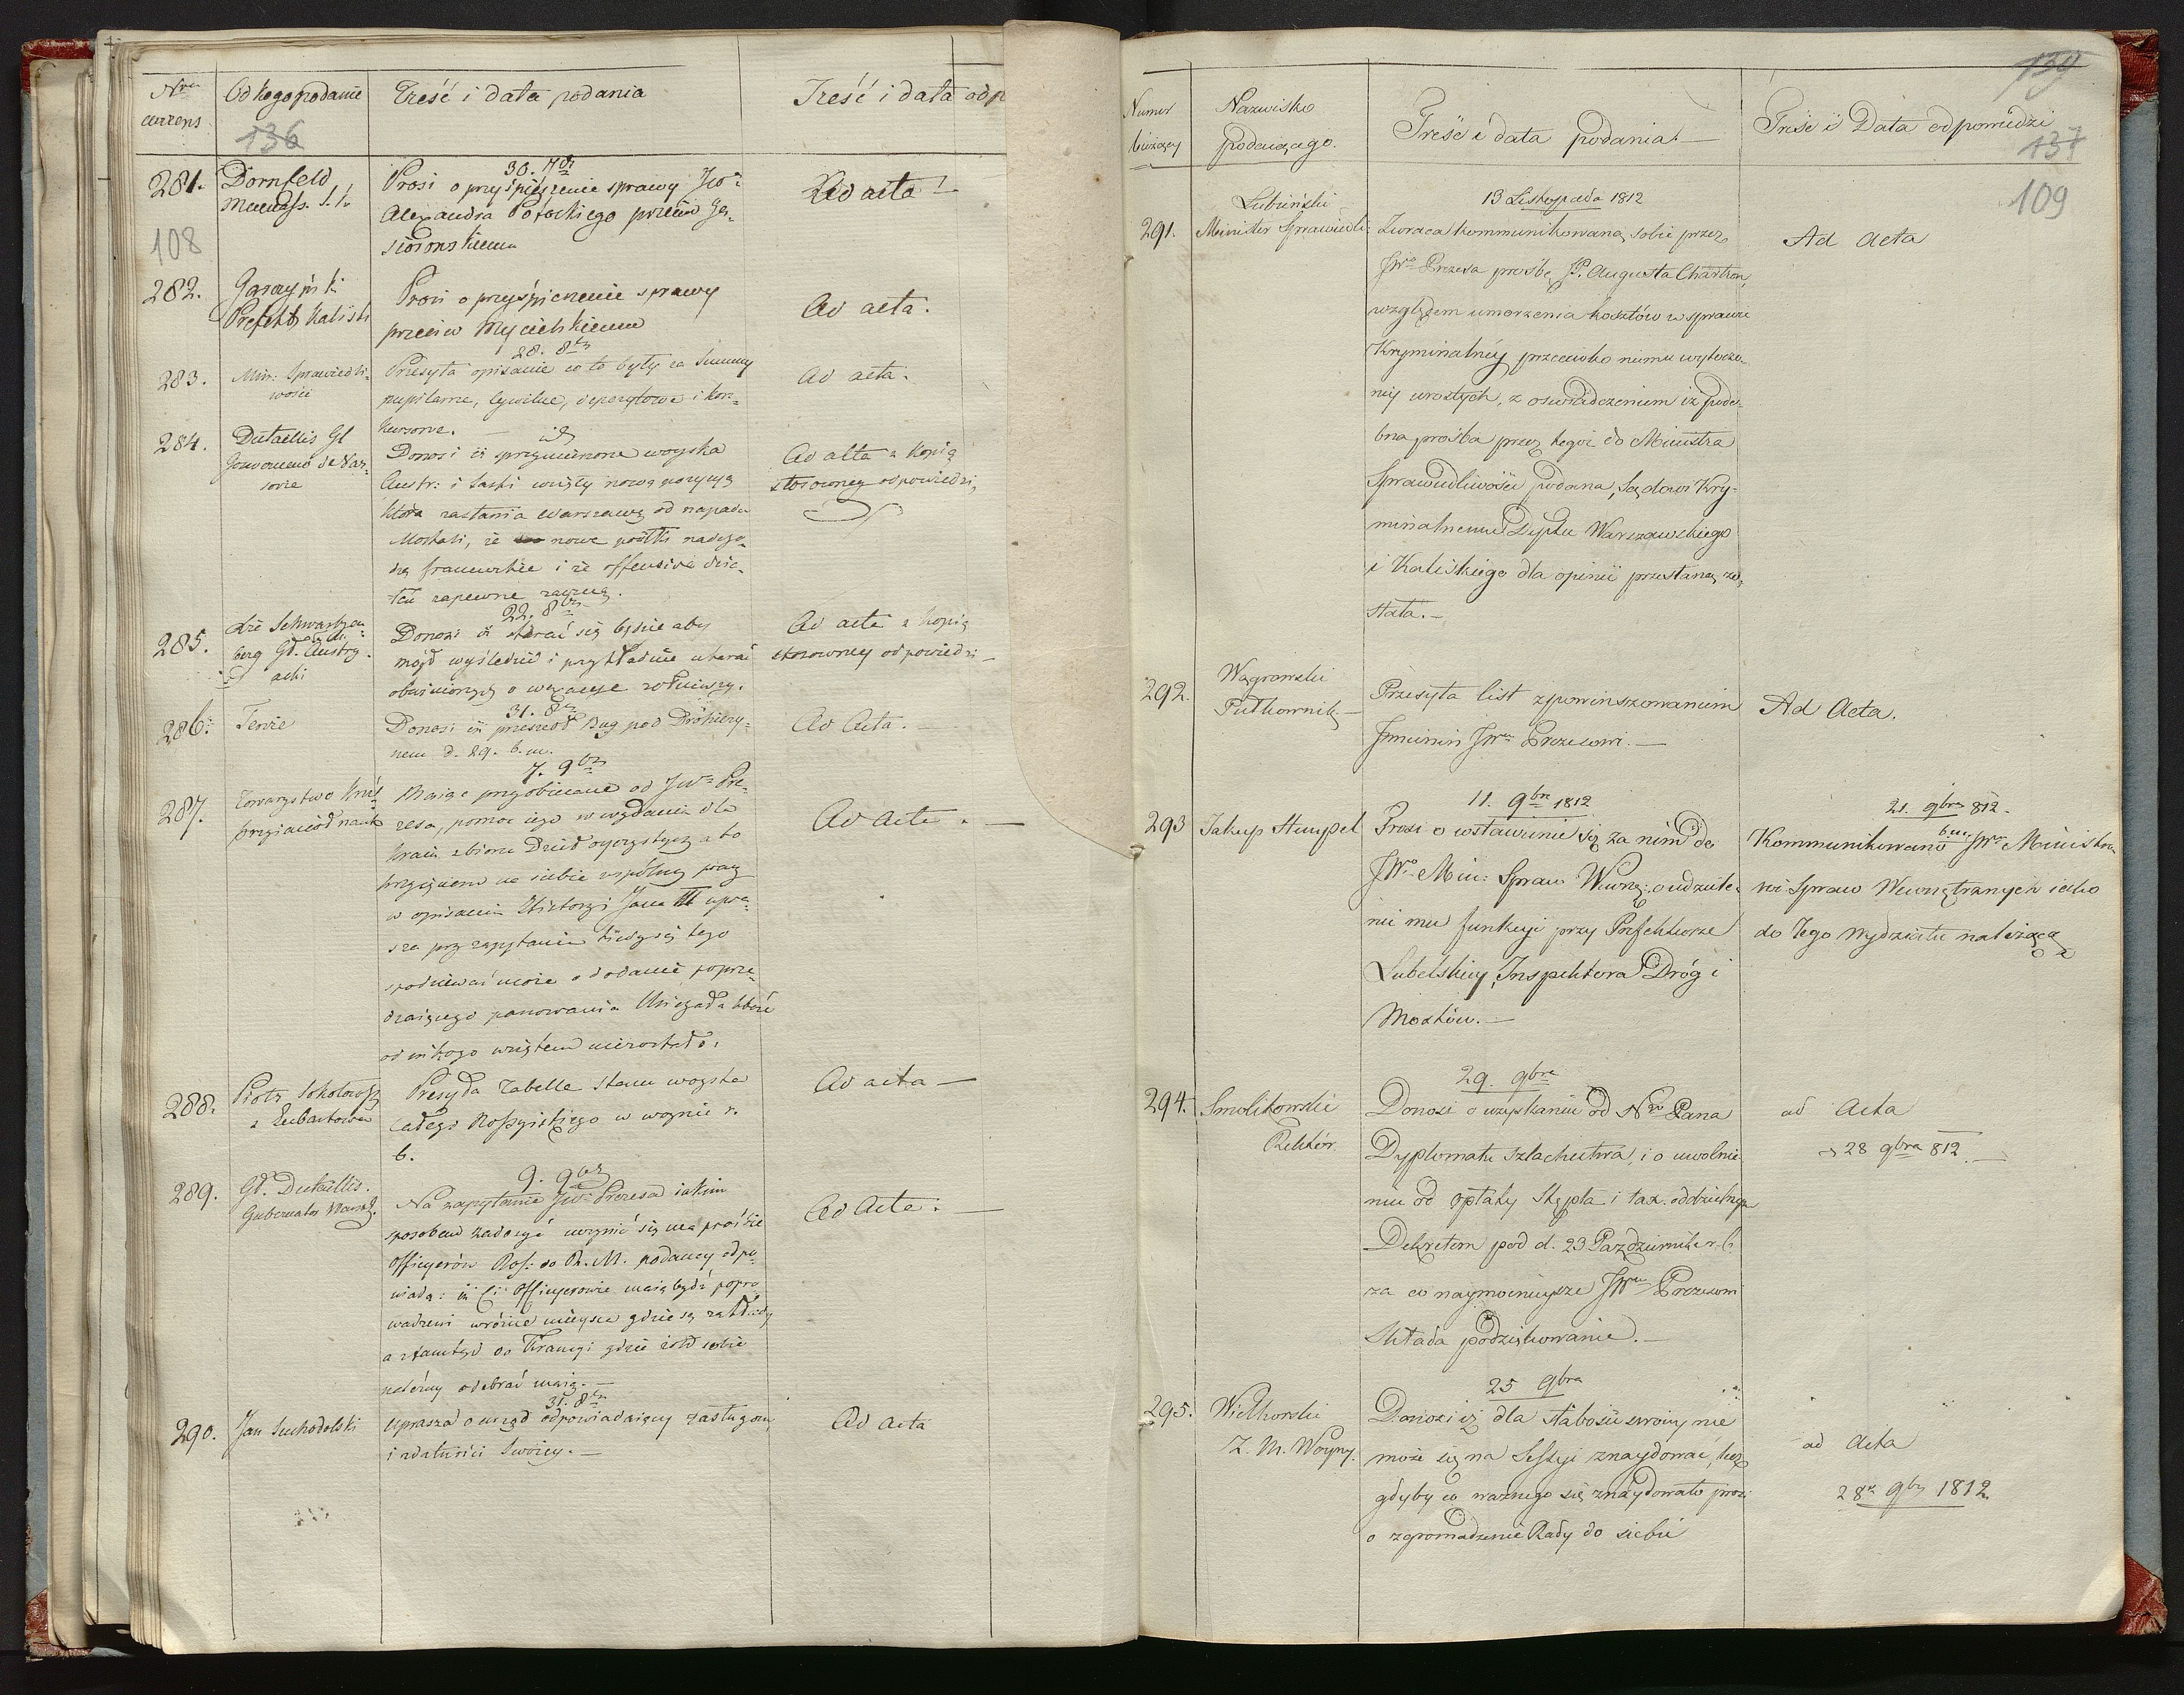 Nro currens
Od kogo podanie
Treść i data podania
Treść i data odp
136
30. 7br
281.
Dornfeld
Prosi o przyśpieszenie sprawy JWo
Ad acta
Alexandra Potockiego przeciw Je-
siorowskiemu
108
282.
Garczyński
Prefekt Kaliski
Prosi o przyśpieszenie sprawy
przeciw Mycielskiemu
Ad acta.
28. 8br
283.
Min: Sprawiedli-
wości
Przesyła opisanie co to były za Summy
pupilarne, cywilne, depozytowe i kon-
kursowe.
Ad acta.
284.
Dutaillis Gl
Gouverneur de Var-
sovie
id
Donosi iż sprzymierzone woyska
Austr: i Saski wzięły nową pozycyą
która zasłania Warszawę od napadu
Moskali, że nowe posiłki nadcho-
dzą francuzkie i że offensive dzia-
łać zapewne zaczną.
Ad acta z kopią
stosowney odpowiedzi,
22. 8br
285.
Xże Schwartzen-
berg Gł. Austry-
acki
Donosi iż starać się będzie aby
mógł wyśledzić i przykładnie ukarać
obwinionych o wexacye żołnierzy.
Ad acta z kopią
stosowney odpowiedzi
31. 8br
286.
Tenże
Donosi iż przeszedł Bug pod Drohiczy-
nem d. 29. b. m.
Ad Acta.
7. 9br
287.
Towarzystwo Król
przyiaciół nauk
Maiąc przyobiecane od JWo Pre-
zesa, pomoc iego w wydaniu dla
kraiu zbioru Dzieł oyczystych a to
przyięciem na siebie wspólney pracy
w opisaniu Historyi Jana III upra-
sza przy zapytaniu kiedy się tego
spodziewać może o dodanie poprze-
dzaiącego panowania Michała które
od nikogo wziętem niezostało.
Ad acta.
288.
Piotr Sokołowski
z Lubartowa
Przesyła Tabelle stanu woyska
całego Rossyiskiego w woynie r.
b.
Ad acta
9. 9br
289.
Gł. Dutaillis.
Gubernator Warsz.
Na zapytanie JWo Prezesa iakim
sposobem zadosyć uczynić się ma prośbie
Officyerów Ros: do R. M. podaney odpo-
wiada: iż Ci Officyerowie maią bydź popro-
wadzeni w różne mieysca gdzie są zakłady
a ztamtąd do Francyi gdzie żołd sobie
należny odebrać maią.
Ad Acta.
31. 8br
290.
Jan Suchodolski
Uprasza o urząd odpowiadaiący zasługom
i zdatności Swoiey.
Ad acta
139
Numer bieżący
Nazwisko podaiącego.
Treść i data podania.
Treść i Data odpowiedzi
137
109
13 Listopada 1812
291.
Lubiński
Minister Sprawiedli:
Zwraca kommunikowaną sobie przez
JWo Prezesa prośbę JP. Augusta Chartron,
względem umorzenia kosztów w sprawie
Kryminalney przeciwko niemu wytoczo-
ney urosłych, z oświadczeniem iż podo-
bna prośba przez tegoż do Ministra
Sprawiedliwości podana, Sądowi Kry-
minalnemu Deptu Warszawskiego
i Kaliskiego dla opinii przesłaną zo-
stała.
Ad Acta
292.
Węgrowski
Pułkownik
Przesyła list z powinszowaniem
Jmienin JWu Prezesowi.
Ad Acta.
11. 9bra 1812
293
Jakup Hempel
Prosi o wstawienie się za nim do
JWo Min: Spraw Wewnę: o udziele-
nie mu funkcyi przy Prefekturze
Lubelskiey, Inspektora Dróg i
Mostów.
21. 9bra 812.
Kommunikowano b.m. JWu Ministro-
wi Spraw Wewnętrznych iako
do Jego Wydziału należącą
29. 9bra
294.
Smolikowski
Rektor
Donosi o uzyskaniu od Nro Pana
Dyplomatu szlachectwa, i o uwolnie-
niu od opłaty Stępla i tax. oddzielnym
Dekretem pod d. 23 Października r. b.
za co naymocnieysze JWu Prezesowi
Składa podziękowanie.
ad Acta
d 28 9bra 812.
25 9bra
295.
Wielhorski
Z. M. Woyny.
Donosi iż dla słabości swoiey nie
może się na Sessyi znaydować, lecz
gdyby co ważnego się znaydowało prosi
o zgromadzenie Rady do siebie
ad Acta
28o 9br 1812